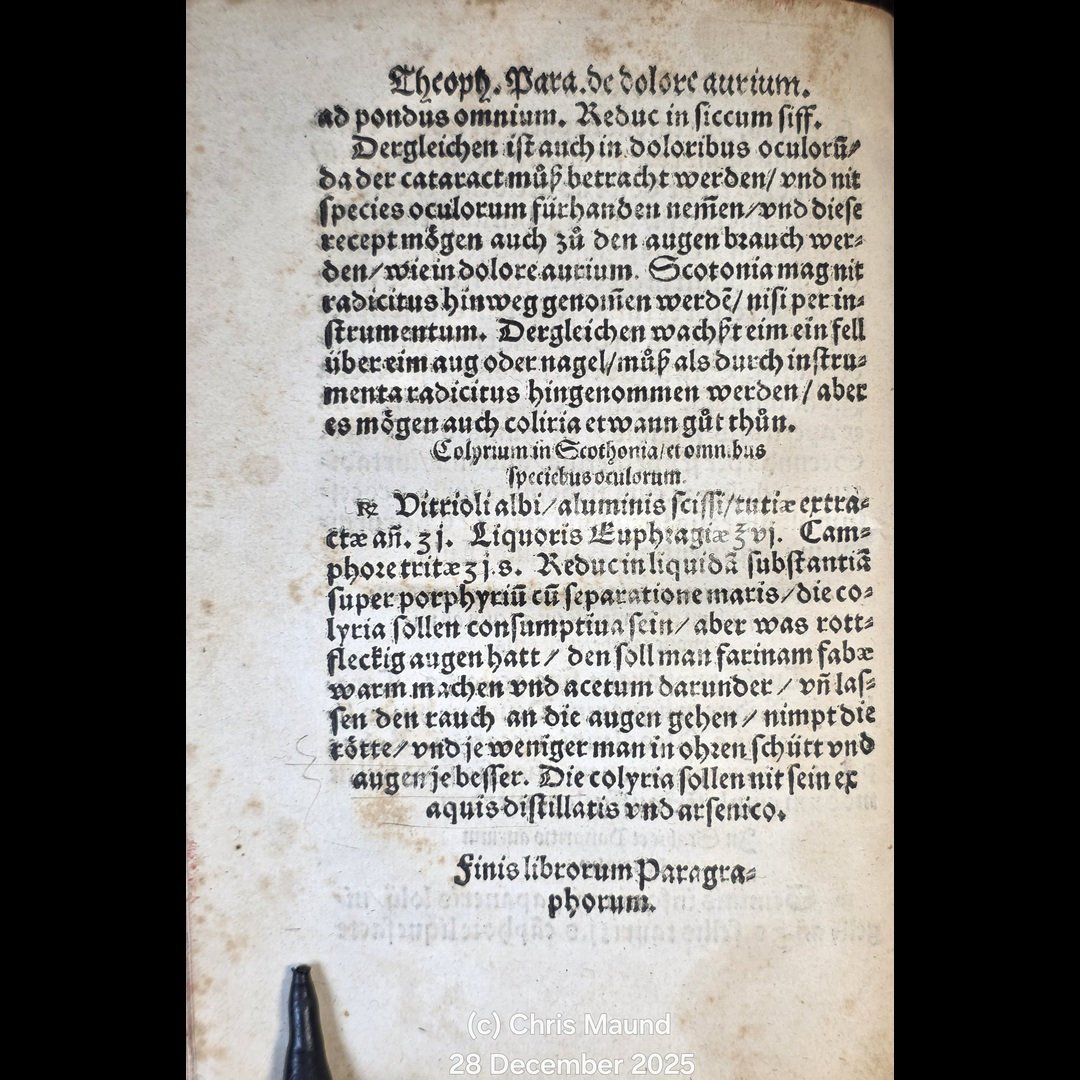 Theoph. Para. de dolore aurium.
ad pondus omnium. Reduc in siccum siff.
Dergleichen ist auch in doloribus oculorū/
da der cataract můß betracht werden/ vnd nit
species oculorum fürhanden nem̄en/ vnd diese
recept mögen auch zů den augen brauch wer⸗
den/ wie in dolore aurium. Scotonia mag nit
radicitus hinweg genom̄en werdē/ nisi per in⸗
strumentum. Dergleichen wachßt eim ein fell
über eim aug oder nagel/ můß als durch instru⸗
menta radicitus hingenommen werden/ aber
es mögen auch coliria etwann gůt thůn.
Colyrium in Scothonia/ et omnibus
speciebus oculorum.
℞ Vitrioli albi/ aluminis scissi/ tutiæ extra⸗
ctæ añ. ʒ j. Liquoris Euphragiæ ℥ vj. Cam⸗
phore tritæ ʒ j. s. Reduc in liquidā substantiā
super porphyriū cū separatione maris/ die co⸗
lyria sollen consumptiua sein/ aber was rott⸗
fleckig augen hatt/ den soll man farinam fabæ
warm machen vnd acetum darunder/ vn̄ las⸗
sen den rauch an die augen gehen/ nimpt die
rötte/ vnd je weniger man in ohren schütt vnd
augen je besser. Die colyria sollen nit sein ex
aquis distillatis vnd arsenico.
Finis librorum Paragra⸗
phorum.
(c) Chris Maund
28 December 2025